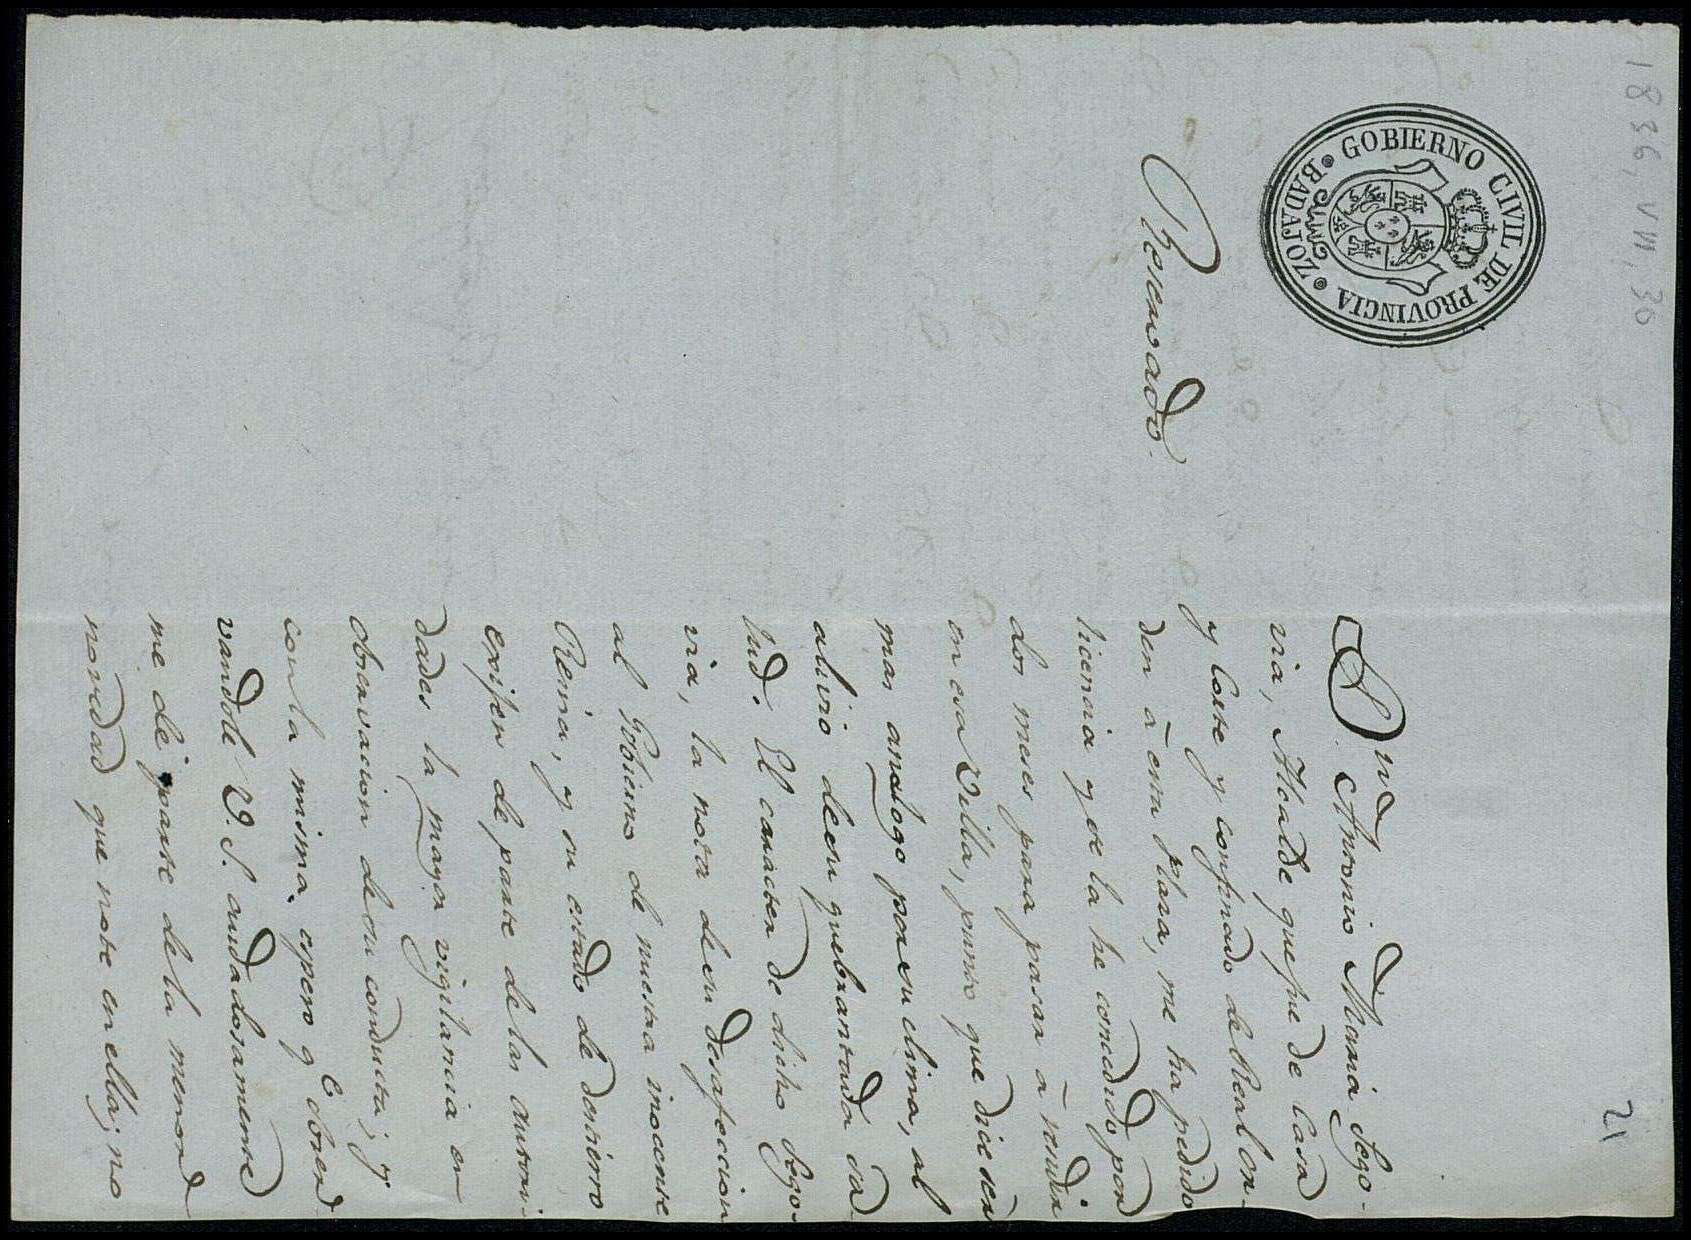 1836, VIII, 30
21
GOBIERNO CIVIL DE PROVINCIA
BADAJOZ
Reservado.
Dn. Antonio Maria Sego-
via, Alcalde que fue de Casa
y Corte y confinado de Real or-
den á esta plaza, me ha pedido
licencia y se la he concedido por
dos meses para pasar á residir
en esa Villa, punto que dice ser
mas analogo por su clima, al
alivio de su quebrantada sa-
lud. El caracter de dicho Sego-
via, la nota de su desafeccion
al Gobierno de nuestra inocente
Reina, y su estado de destierro
exijen de parte de las autori-
dades la mayor vigilancia en
observacion de su conducta; y
con la misma espero qe. obser-
vandole V. S. cuidadosamente
me dé parte de la menor
novedad que note en ella; no